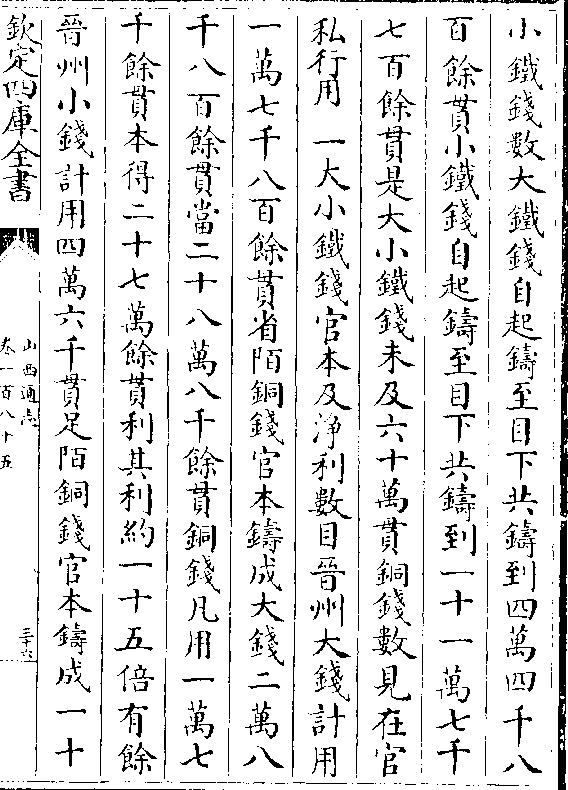 小鐵錢數大鐵錢自起鑄至目下共鑄到四萬四千八
百餘貫小鐵錢自起鑄至目下共鑄到一十一萬七千
七百餘貫是大小鐵錢未及六十萬貫銅錢數見在官
私行用　一大小鐵錢官本及淨利數目晉州大錢計用
一萬七千八百餘貫省陌銅錢官本鑄成大錢二萬八
千八百餘貫當二十八萬八千餘貫銅錢凡用一萬七
千餘貫本得二十七萬餘貫利其利約一十五倍有餘
晉州小錢計用四萬六千貫足陌銅錢官本鑄成一十
欽定四庫全書
山西通志
卷一百八十五
三十六